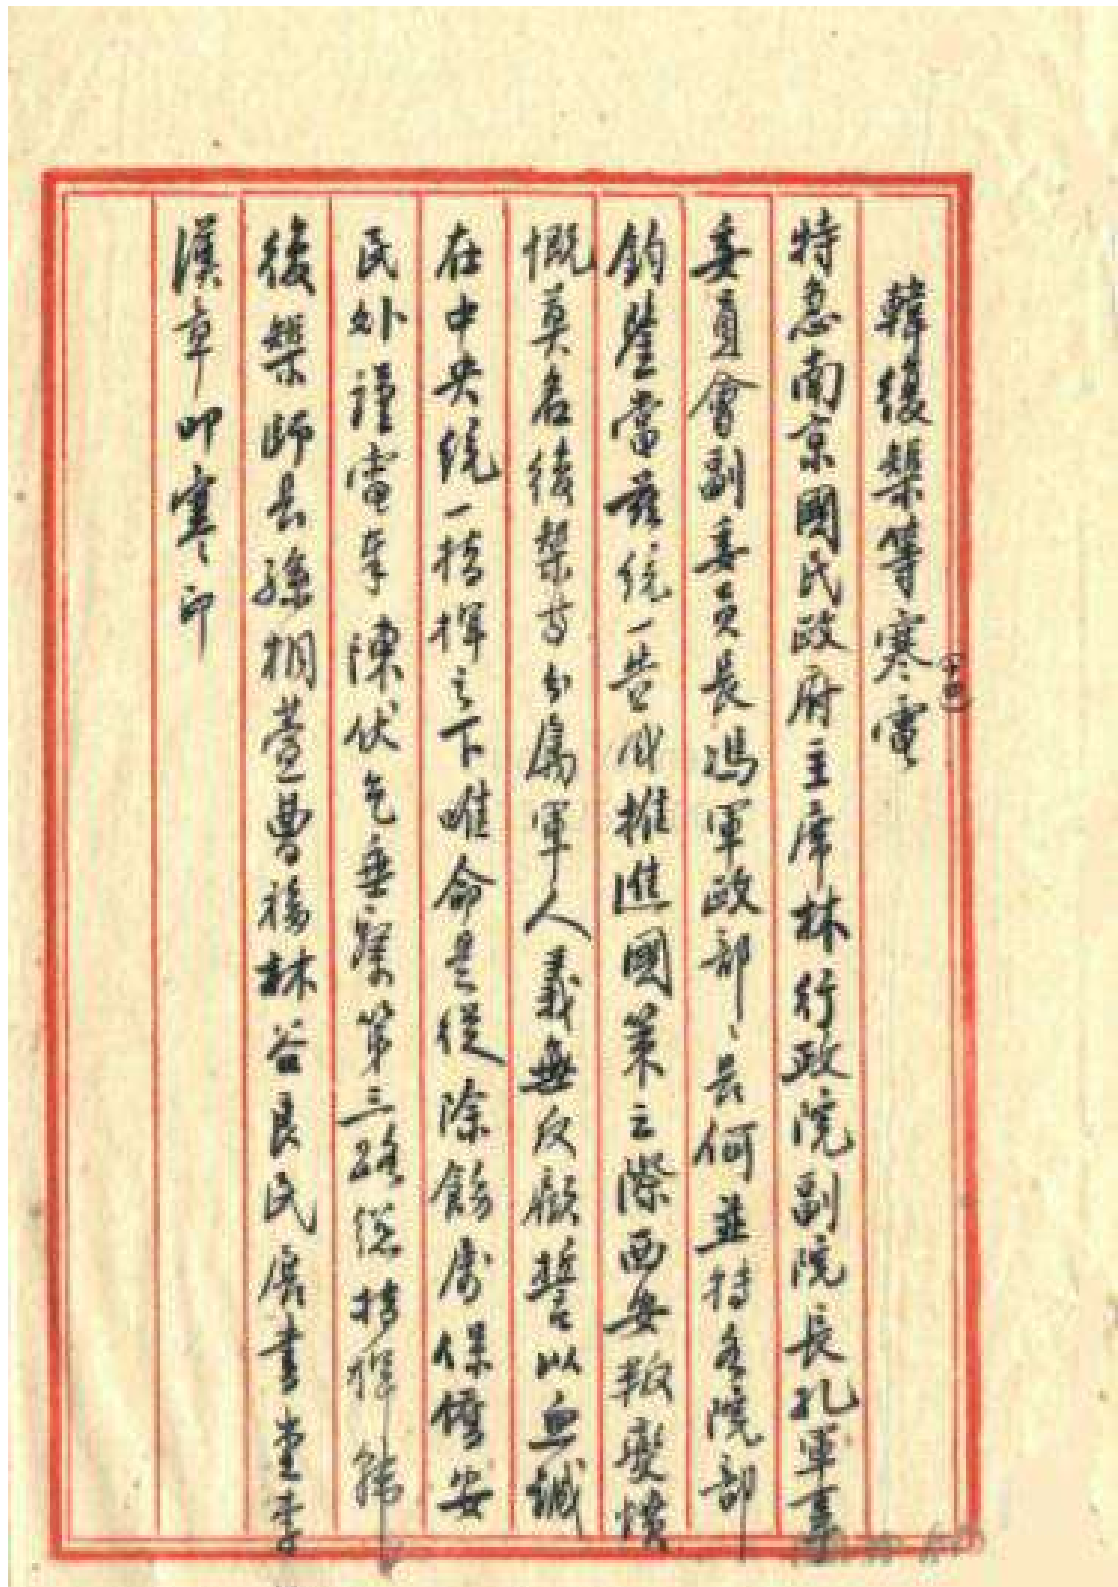 韓復榘等寒電
特急南京國民政府主席林行政院副院長孔軍事
委員會副委員長馮軍政部〻長何並轉各院部
鈞鑒當茲統一告成推進國策之際西安叛變憤
慨莫名復榘等分屬軍人義無反顧誓以血誠
在中央統一指揮之下唯命是從除飭屬保僑安
民外謹電奉陳伏乞垂察第三路總指揮韓
復榘師長孫桐萱曹福林谷良民展書堂李
漢章叩寒印